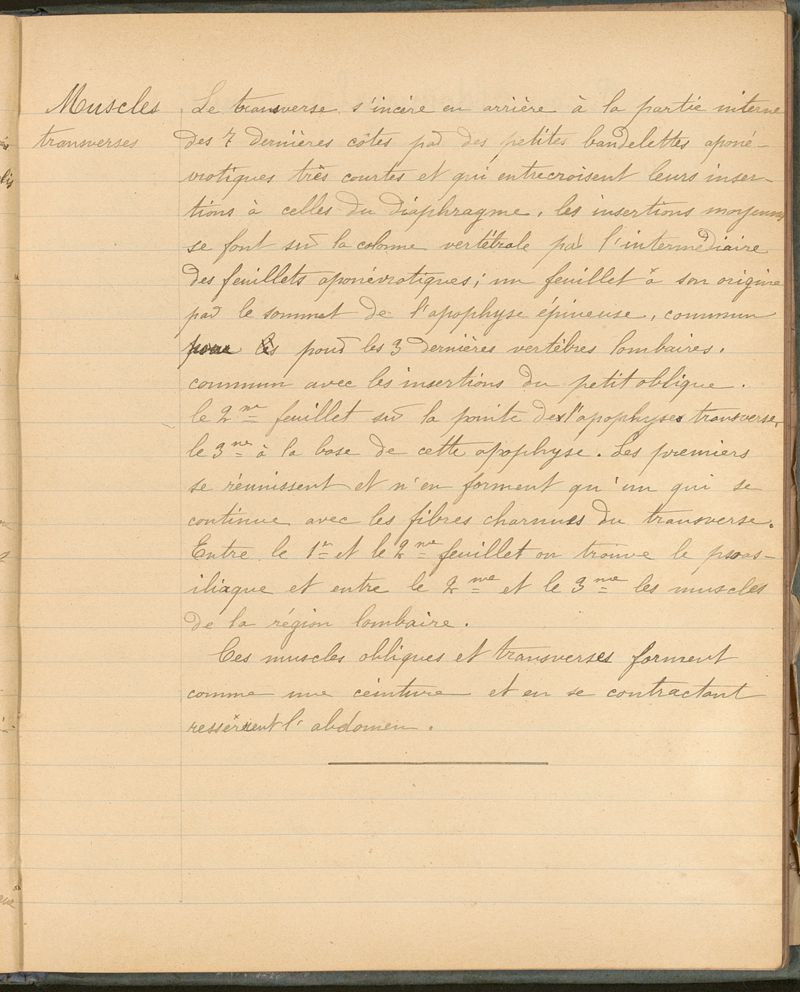 Muscles
transverses
Le transverse s'incère en arrière à la partie interne
des 7 dernières côtes par des petites bandelettes aponé-
vrotiques très courtes et qui entrecroisent leurs inser-
tions à celles du diaphragme, les insertions moyennes
se font sur la colonne vertébrale par l'intermédiaire
des feuillets aponévrotiques; un feuillet à son origine
par le sommet de l'apophyse épineuse, commun
pour les 3 dernières vertèbres lombaires.
commun avec les insertions du petit oblique.
le 2me feuillet sur la pointe de l'apophyse transverse,
le 3me à la base de cette apophyse. Les premiers
se réunissent et n'en forment qu'un qui se
continue avec les fibres charnues du transverse.
Entre le 1er et le 2me feuillet on trouve le psoas-
iliaque et entre le 2me et le 3me les muscles
de la région lombaire.
Ces muscles obliques et transverses forment
comme une ceinture et en se contractant
resserrent l'abdomen.